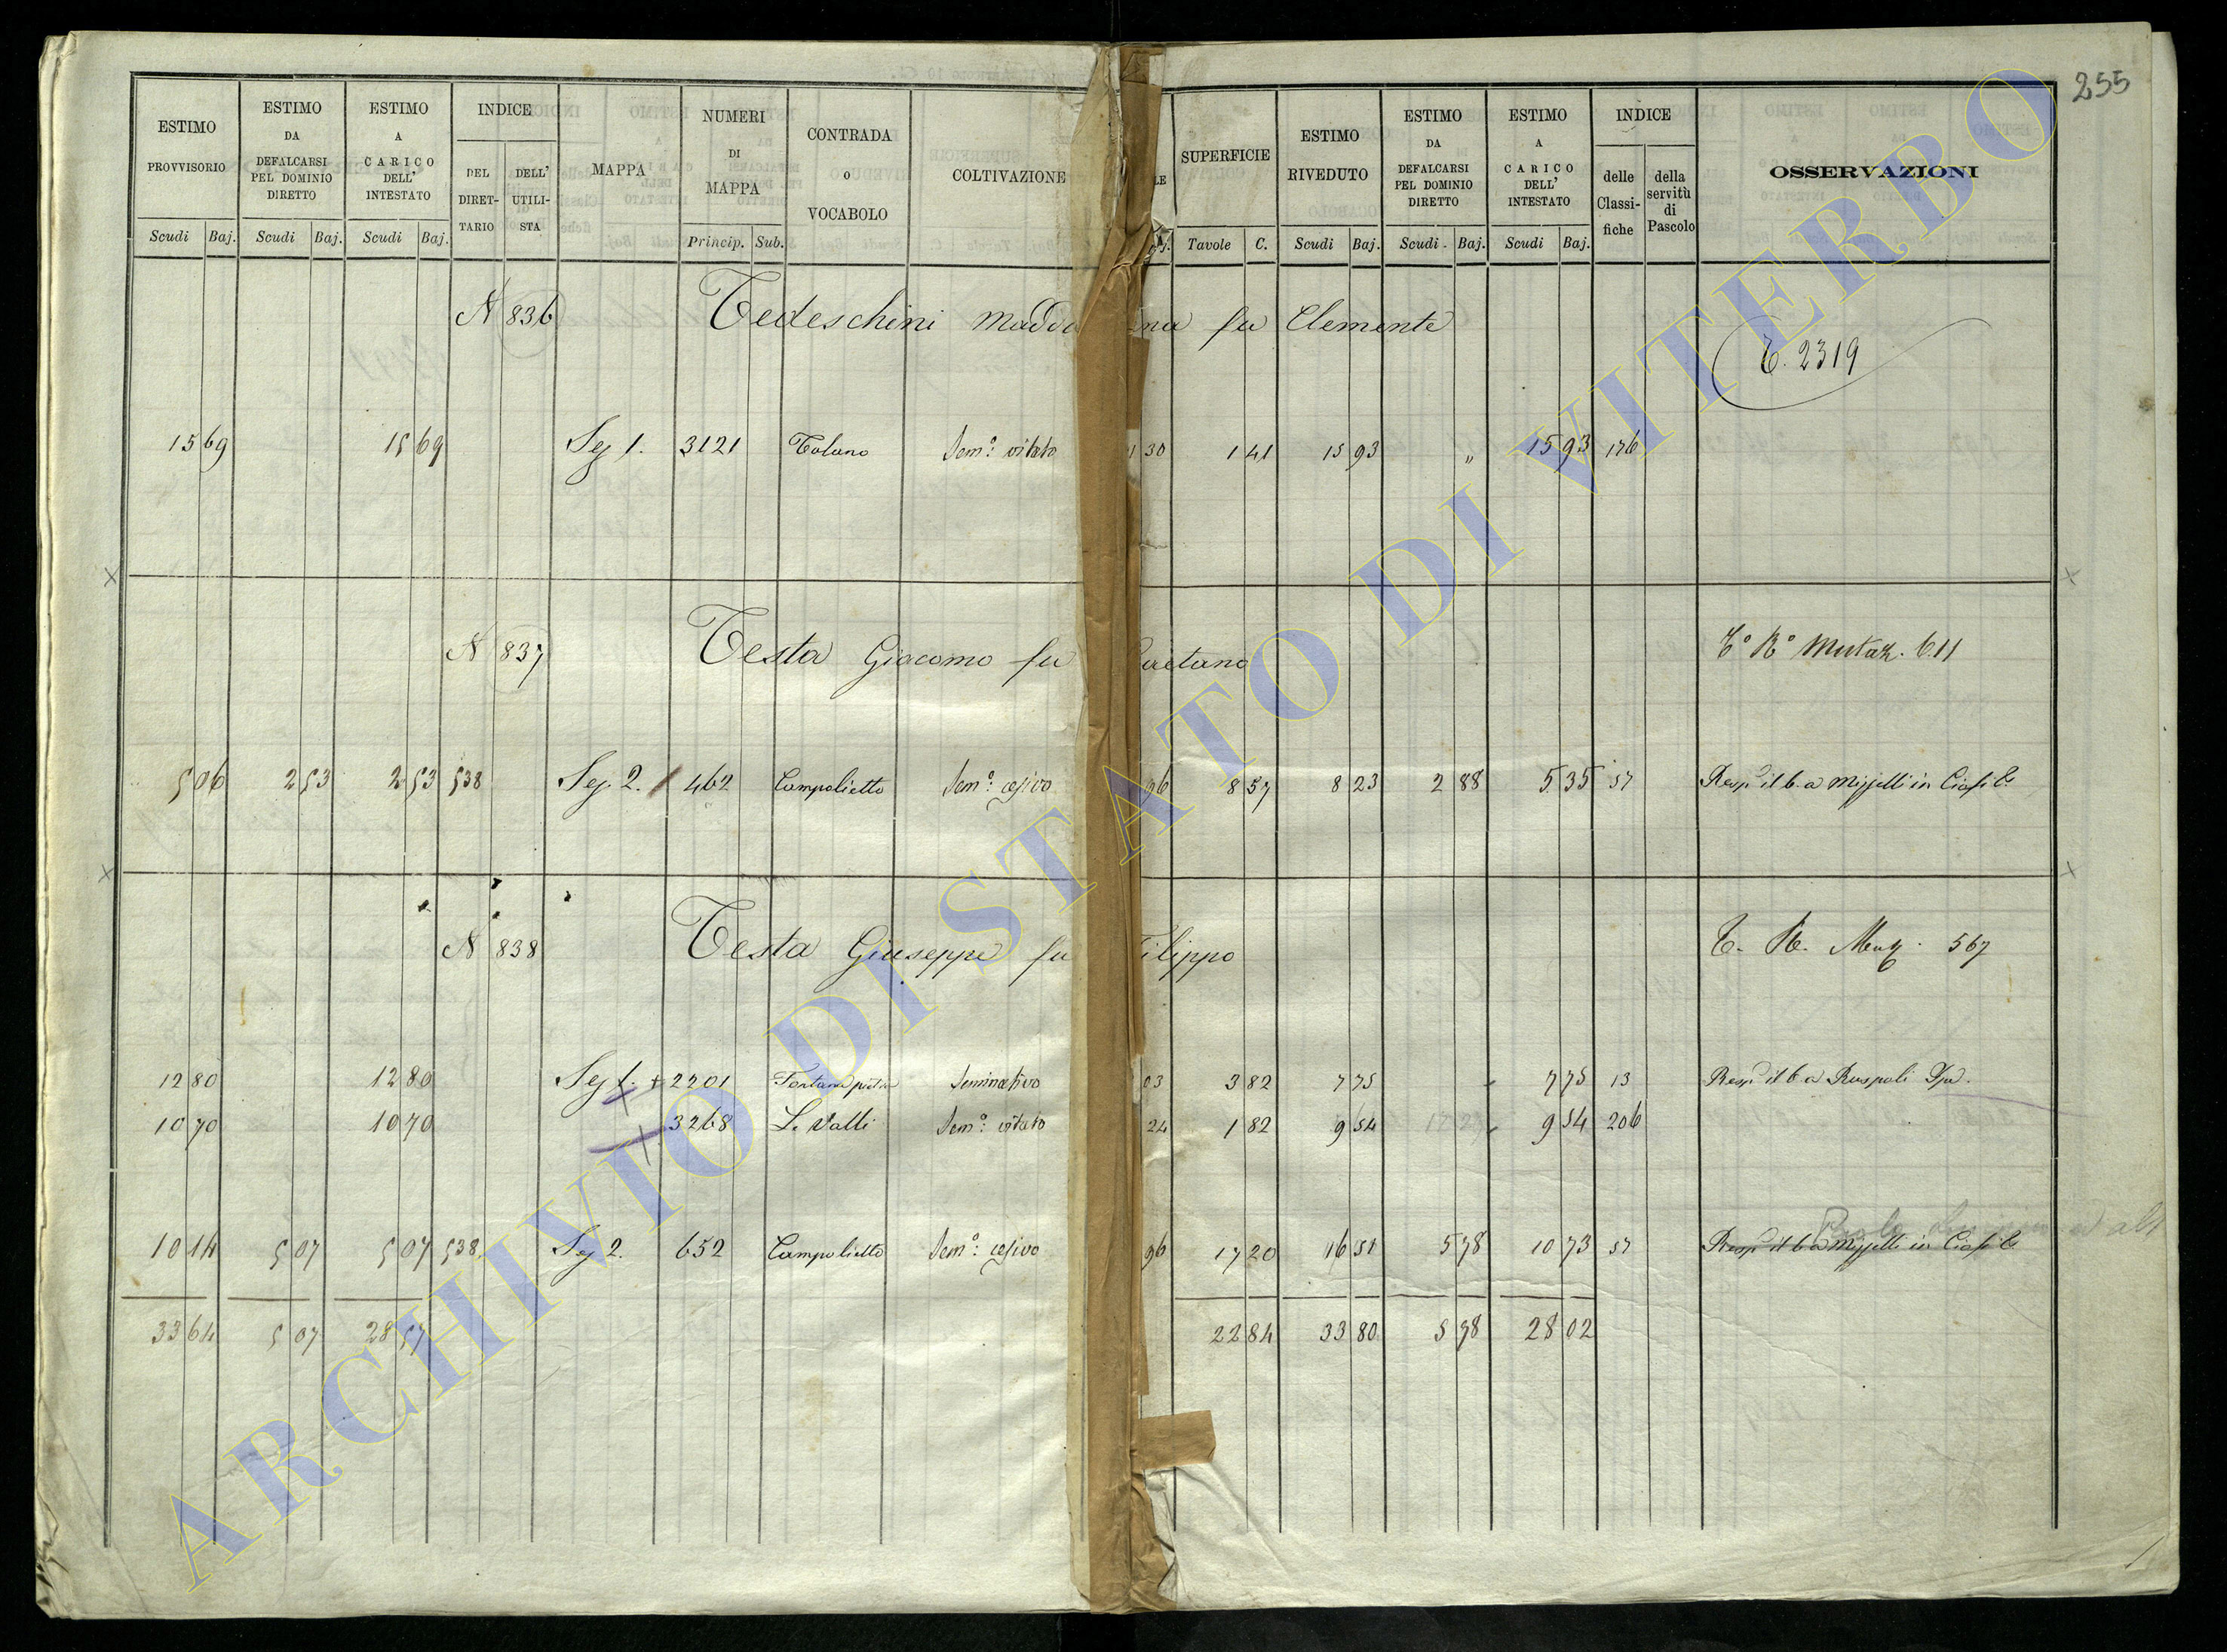 255
ESTIMO PROVVISORIO Scudi Baj.
ESTIMO DA DEFALCARSI PEL DOMINIO DIRETTO Scudi Baj.
ESTIMO A CARICO DELL' INTESTATO Scudi Baj.
INDICE DEL DIRETTARIO DELL' UTILISTA
MAPPA
NUMERI DI MAPPA Princip. Sub.
CONTRADA O VOCABOLO
COLTIVAZIONE
SUPERFICIE Tavole C.
ESTIMO RIVEDUTO Scudi Baj.
ESTIMO DA DEFALCARSI PEL DOMINIO DIRETTO Scudi Baj.
ESTIMO A CARICO DELL' INTESTATO Scudi Baj.
INDICE delle Classifiche della servitù di Pascolo
OSSERVAZIONI
N 836 Tedeschini Madd na fu Clemente
T. 2319
15 69 15 69 Sez 1. 3121 Sem.º vitato 30 1 41 15 93 " 15 93 176
N 837 Testa Giacomo fu aetano
Tº Rº Mutaz. 611
5 06 2 53 2 53 538 Sez. 2. 462 Campolietto Sem.º 96 8 57 8 23 2 88 5 35 57 il
N 838 Testa Giuseppe fu Filippo
567
12 80 12 80 Sez 1. 2201 Seminativo 03 3 82 7 75 7 75 13 il a Ruspoli
10 70 10 70 3268 Le Valli Sem.º vitato 24 1 82 9 54 9 54 206
10 14 5 07 5 07 538 Sez 2. 652 Campolietto Sem.º 96 17 20 16 51 5 78 10 73 57
33 64 5 07 28 57 22 84 33 80 5 78 28 02
ARCHIVIO DI STATO DI VITERBO